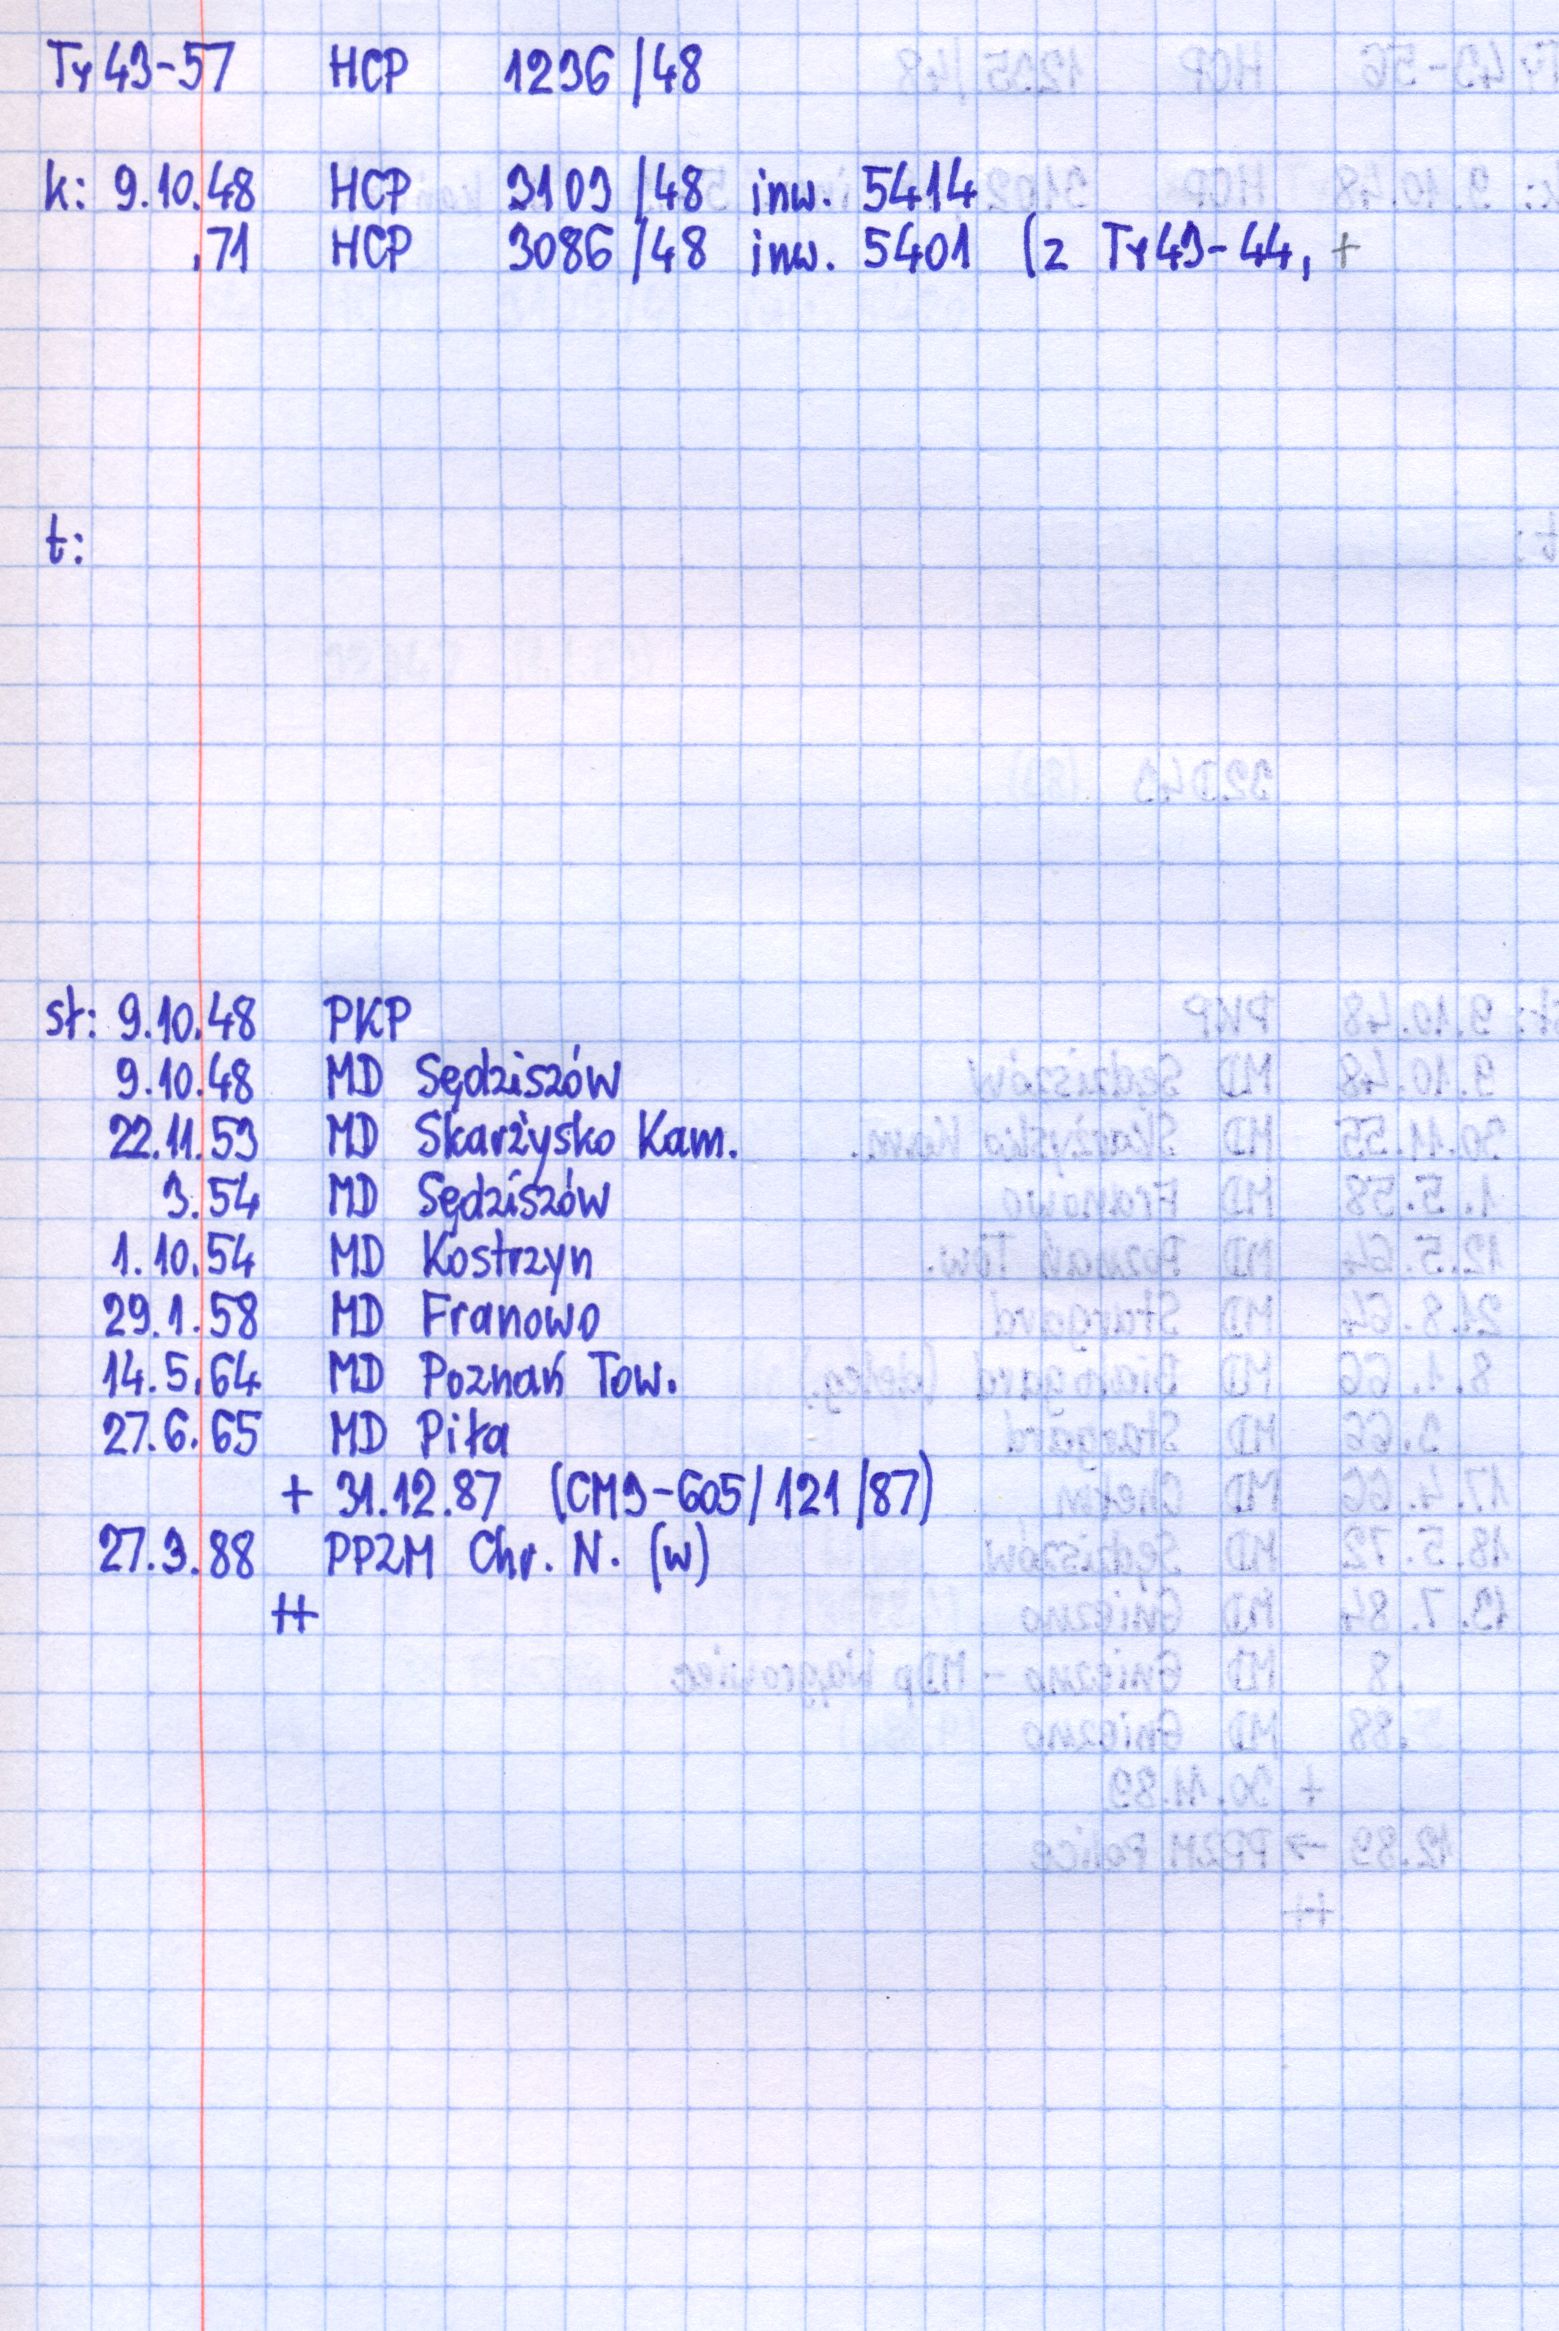 Ty43-57 HCP 1236/48
k: 9.10.48 HCP 3103/48 inw. 5414
.71 HCP 3086/48 inw. 5401 (z Ty43-44, +
t:
st: 9.10.48 PKP
9.10.48 MD Sędziszów
22.11.53 MD Skarżysko Kam.
3.54 MD Sędziszów
1.10.54 MD Kostrzyn
29.1.58 MD Franowo
14.5.64 MD Poznań Tow.
27.6.65 MD Piła
+ 31.12.87 (CM3-605/121/87)
27.3.88 PPZM Chr. N. (w)
++